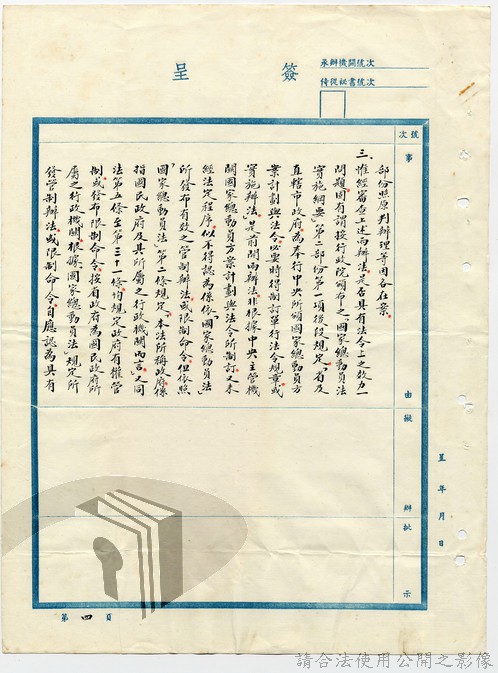 簽呈
承辦機關號次
侍從祕書號次
號次
事由
擬辦
批示
呈 年 月 日
部份照原判辦理等因各在案。
三、惟經審查上述兩辦法是否具有法令上之效力一
問題固有謂按行政院頒布之「國家總動員法
實施綱要」第二部份第一項後段規定「省及
直轄市政府為奉行中央所頒國家總動員方
案計劃與法令必要時得制訂單行法令規章或
實施辦法」是前開兩辦法非根據中央主管機
關國家總動員方案計劃與法令所制訂又未
經法定程序似不得認為係依「國家總動員法」
所發布有效之管制辦法或限制命令但依照
「國家總動員法」第二條規定「本法所稱政府係
指國民政府及其所屬之行政機關而言」又同
法第五條至第三十一條均規定政府有權管
制或發布限制命令按省政府為國民政府所
屬之行政機關根據「國家總動員法」規定所
發管制辦法或限制命令自應認為具有
第四頁
請合法使用公開之影像